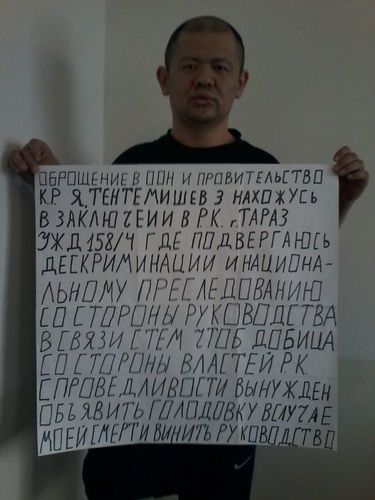 ОБРОЩЕНИЕ В ООН И ПРОВИТЕЛЬСТВО
К.Р Я, ТЕНТЕМИШЕВ З НАХОЖУСЬ
В ЗАКЛЮЧЕИИ В Р.К. г. ТАРАЗ
УЖД 158/4 ГДЕ ПОДВЕРГАЮСЬ
ДЕСКРИМИНАЦИИ И НАЦИОНА-
ЛЬНОМУ ПРЕСЛЕДОВАНИЮ
СО СТОРОНЫ РУКОВОДСТВА
В СВЯЗИ С ТЕМ ЧТОБ ДОБИЦА
СО СТОРОНЫ ВЛАСТЕЙ Р.К.
СПРОВЕДЛИВОСТИ ВЫНУЖДЕН
ОБЪЯВИТЬ ГОЛОДОВКУ В СЛУЧАЕ
МОЕЙ СМЕРТИ ВИНИТЬ РУКОВОДСТВО